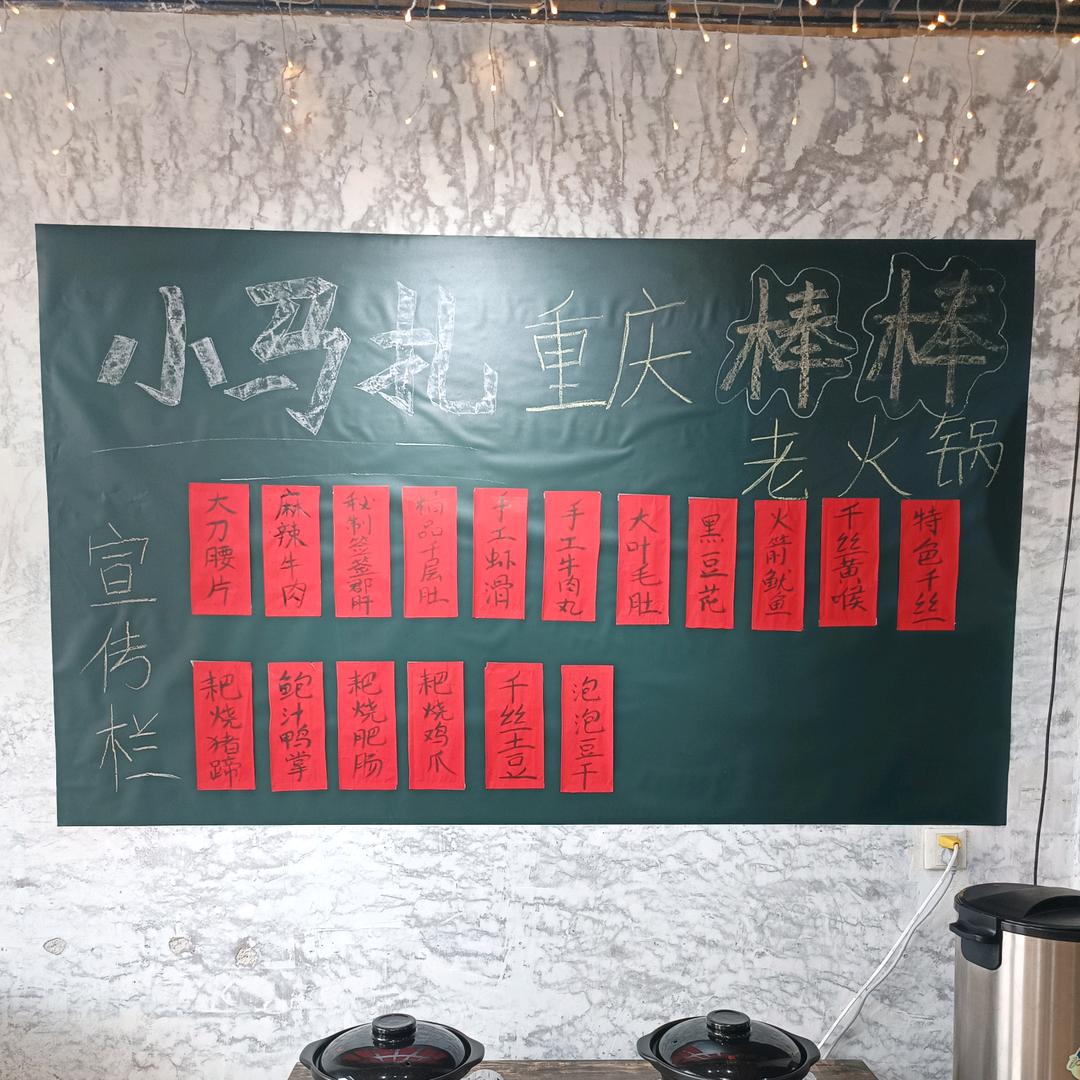 小马扎重庆棒棒
老火锅
宣传栏
大刀腰片
麻辣牛肉
秘制签签郡肝
精品千层肚
手工虾滑
手工牛肉丸
大叶毛肚
黑豆花
火箭鱿鱼
千丝黄喉
特色千丝
耙烧猪蹄
鲍汁鸭掌
耙烧肥肠
耙烧鸡爪
千丝土豆
泡泡豆干